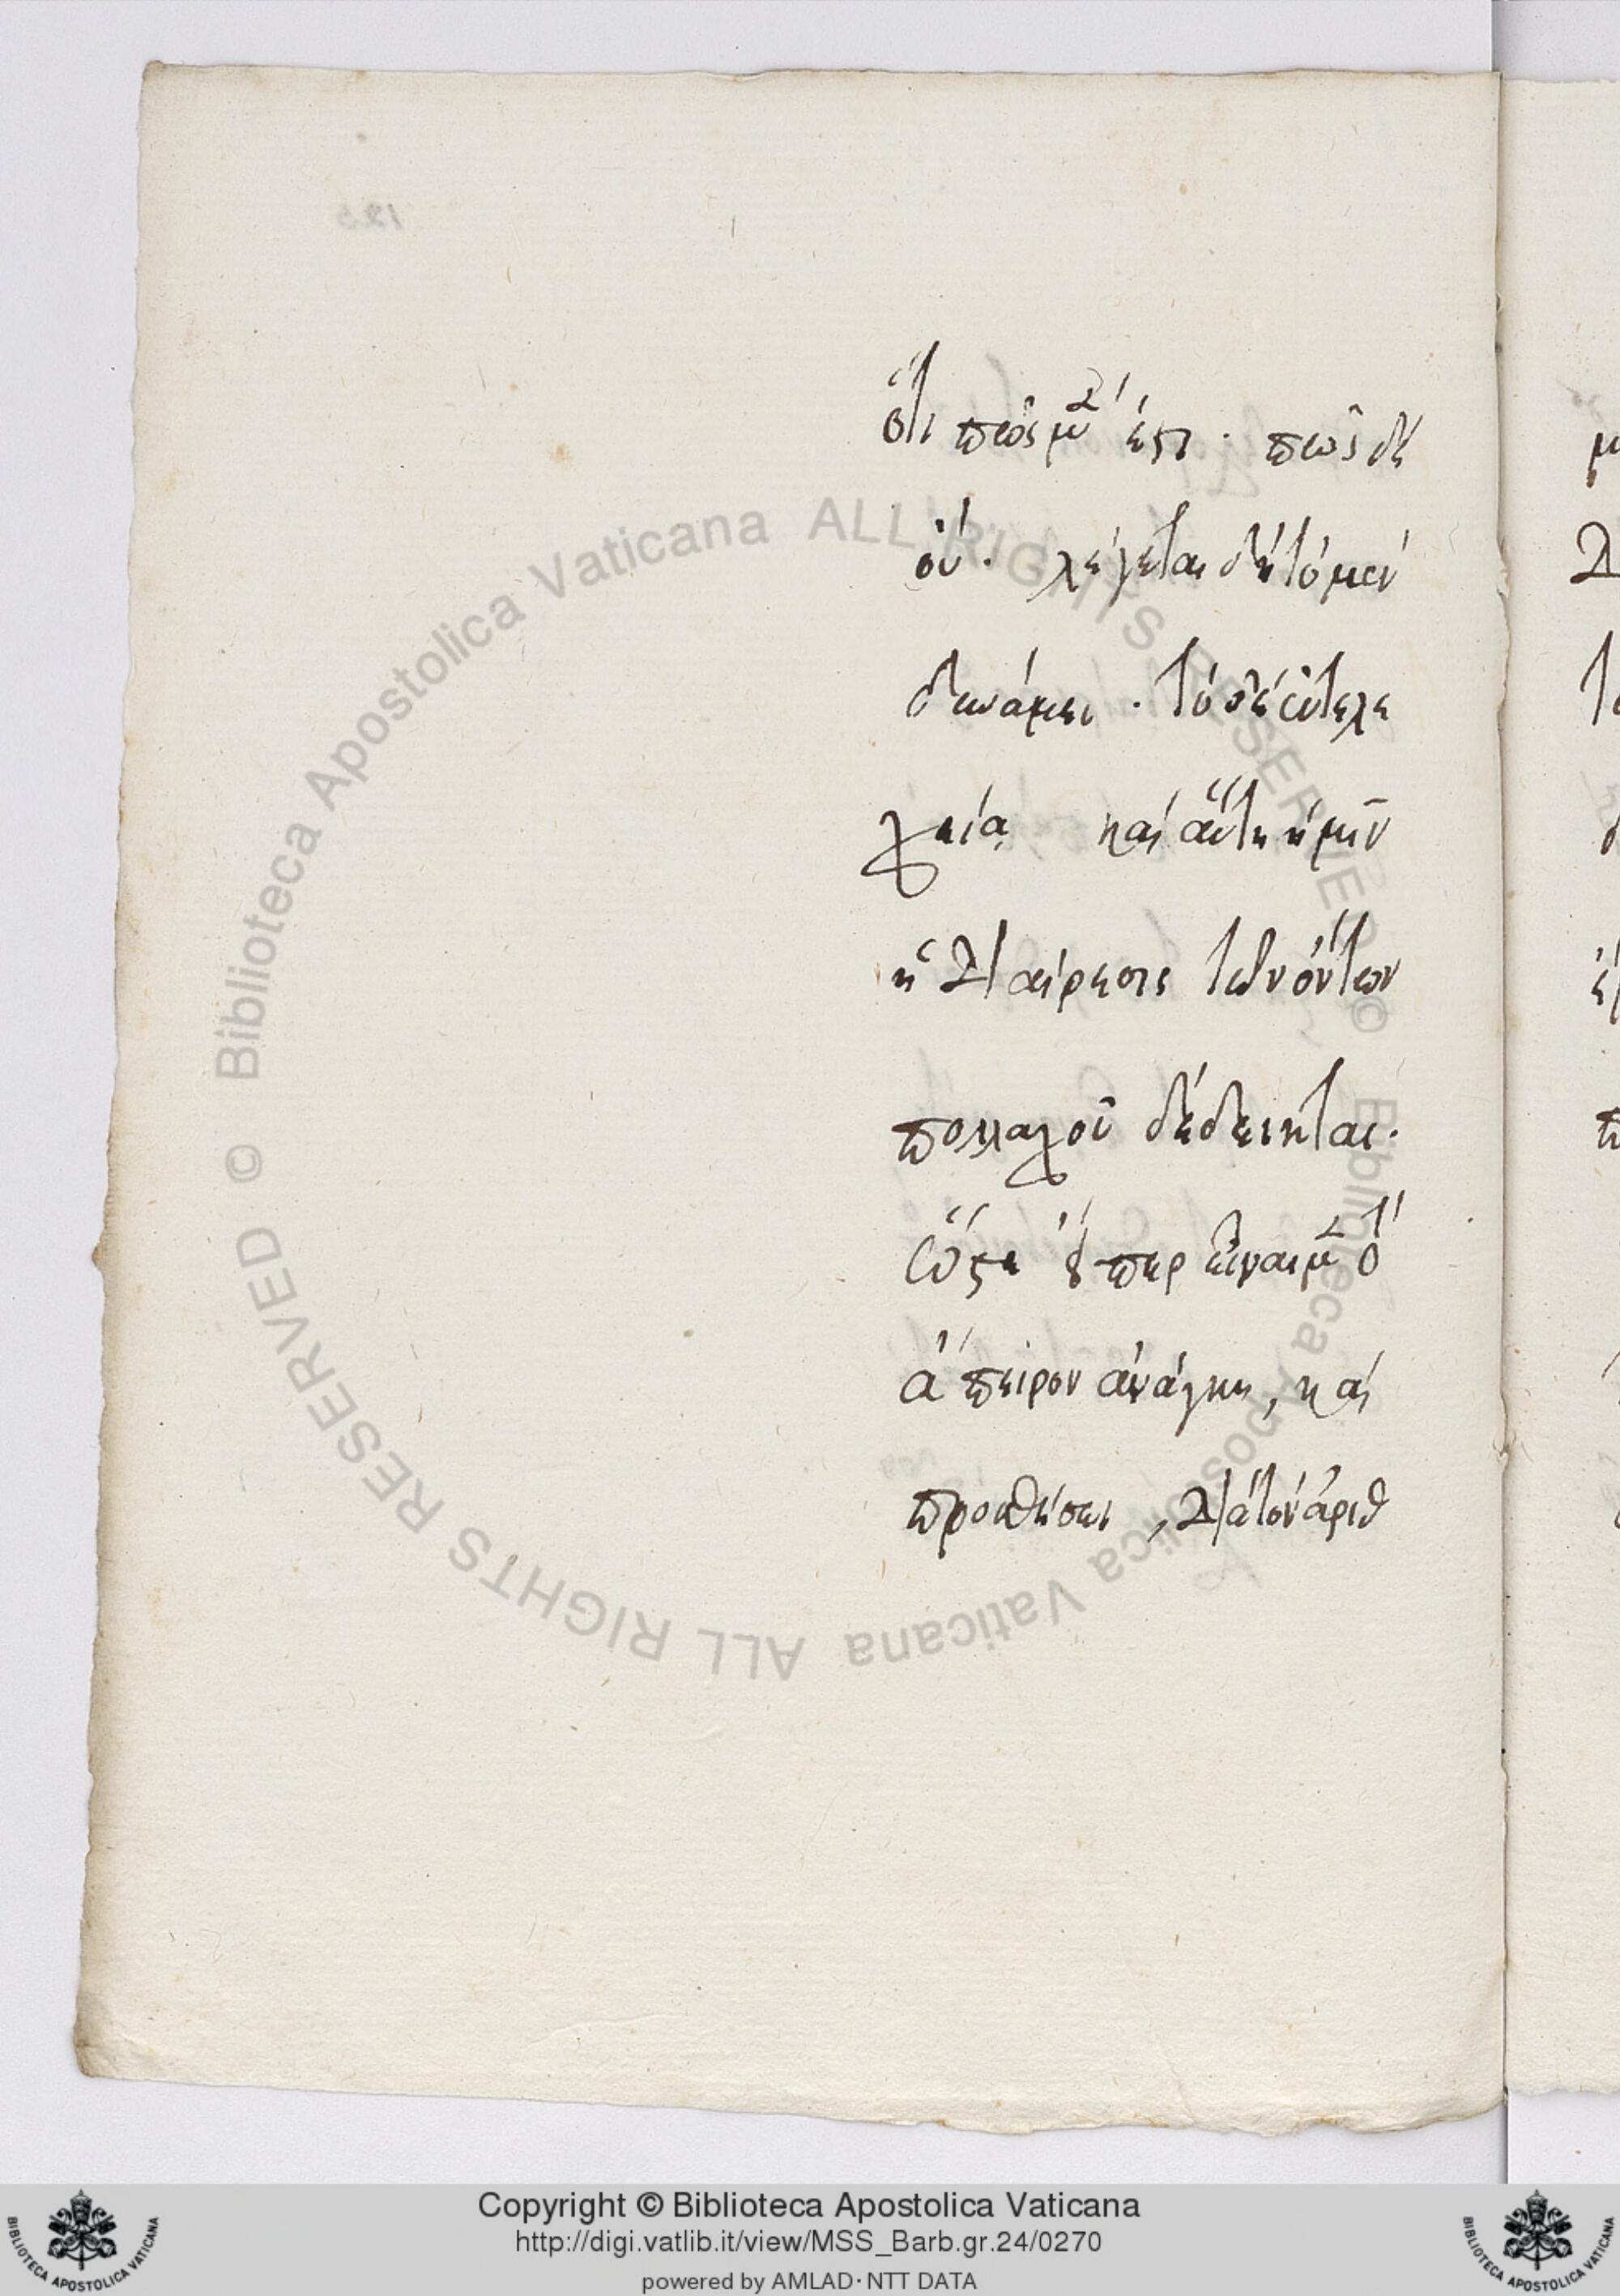 ὅτι πῶς μὲν ἔστι· πῶς δ'
οὔ· λέγεται δὲ τὸ μὲν
δυνάμει· τὸ δὲ ἐντελε
χείᾳ καὶ αὕτη ἡμῖν
ἡ διαίρεσις τῶν ὄντων
πολλαχοῦ δέδεικται·
ὥστε εἴπερ εἶναι μὲν τὸ
ἄπειρον ἀνάγκη, καὶ
προσθέσει, διὰ τὸν ἀριθ
μ
τ
Biblioteca Apostolica Vaticana ALL RIGHTS RESERVED © Biblioteca Apostolica Vaticana ALL RIGHTS RESERVED ©
Copyright © Biblioteca Apostolica Vaticana
http://digi.vatlib.it/view/MSS_Barb.gr.24/0270
powered by AMLAD·NTT DATA
BIBLIOTECA APOSTOLICA VATICANA
BIBLIOTECA APOSTOLICA VATICANA